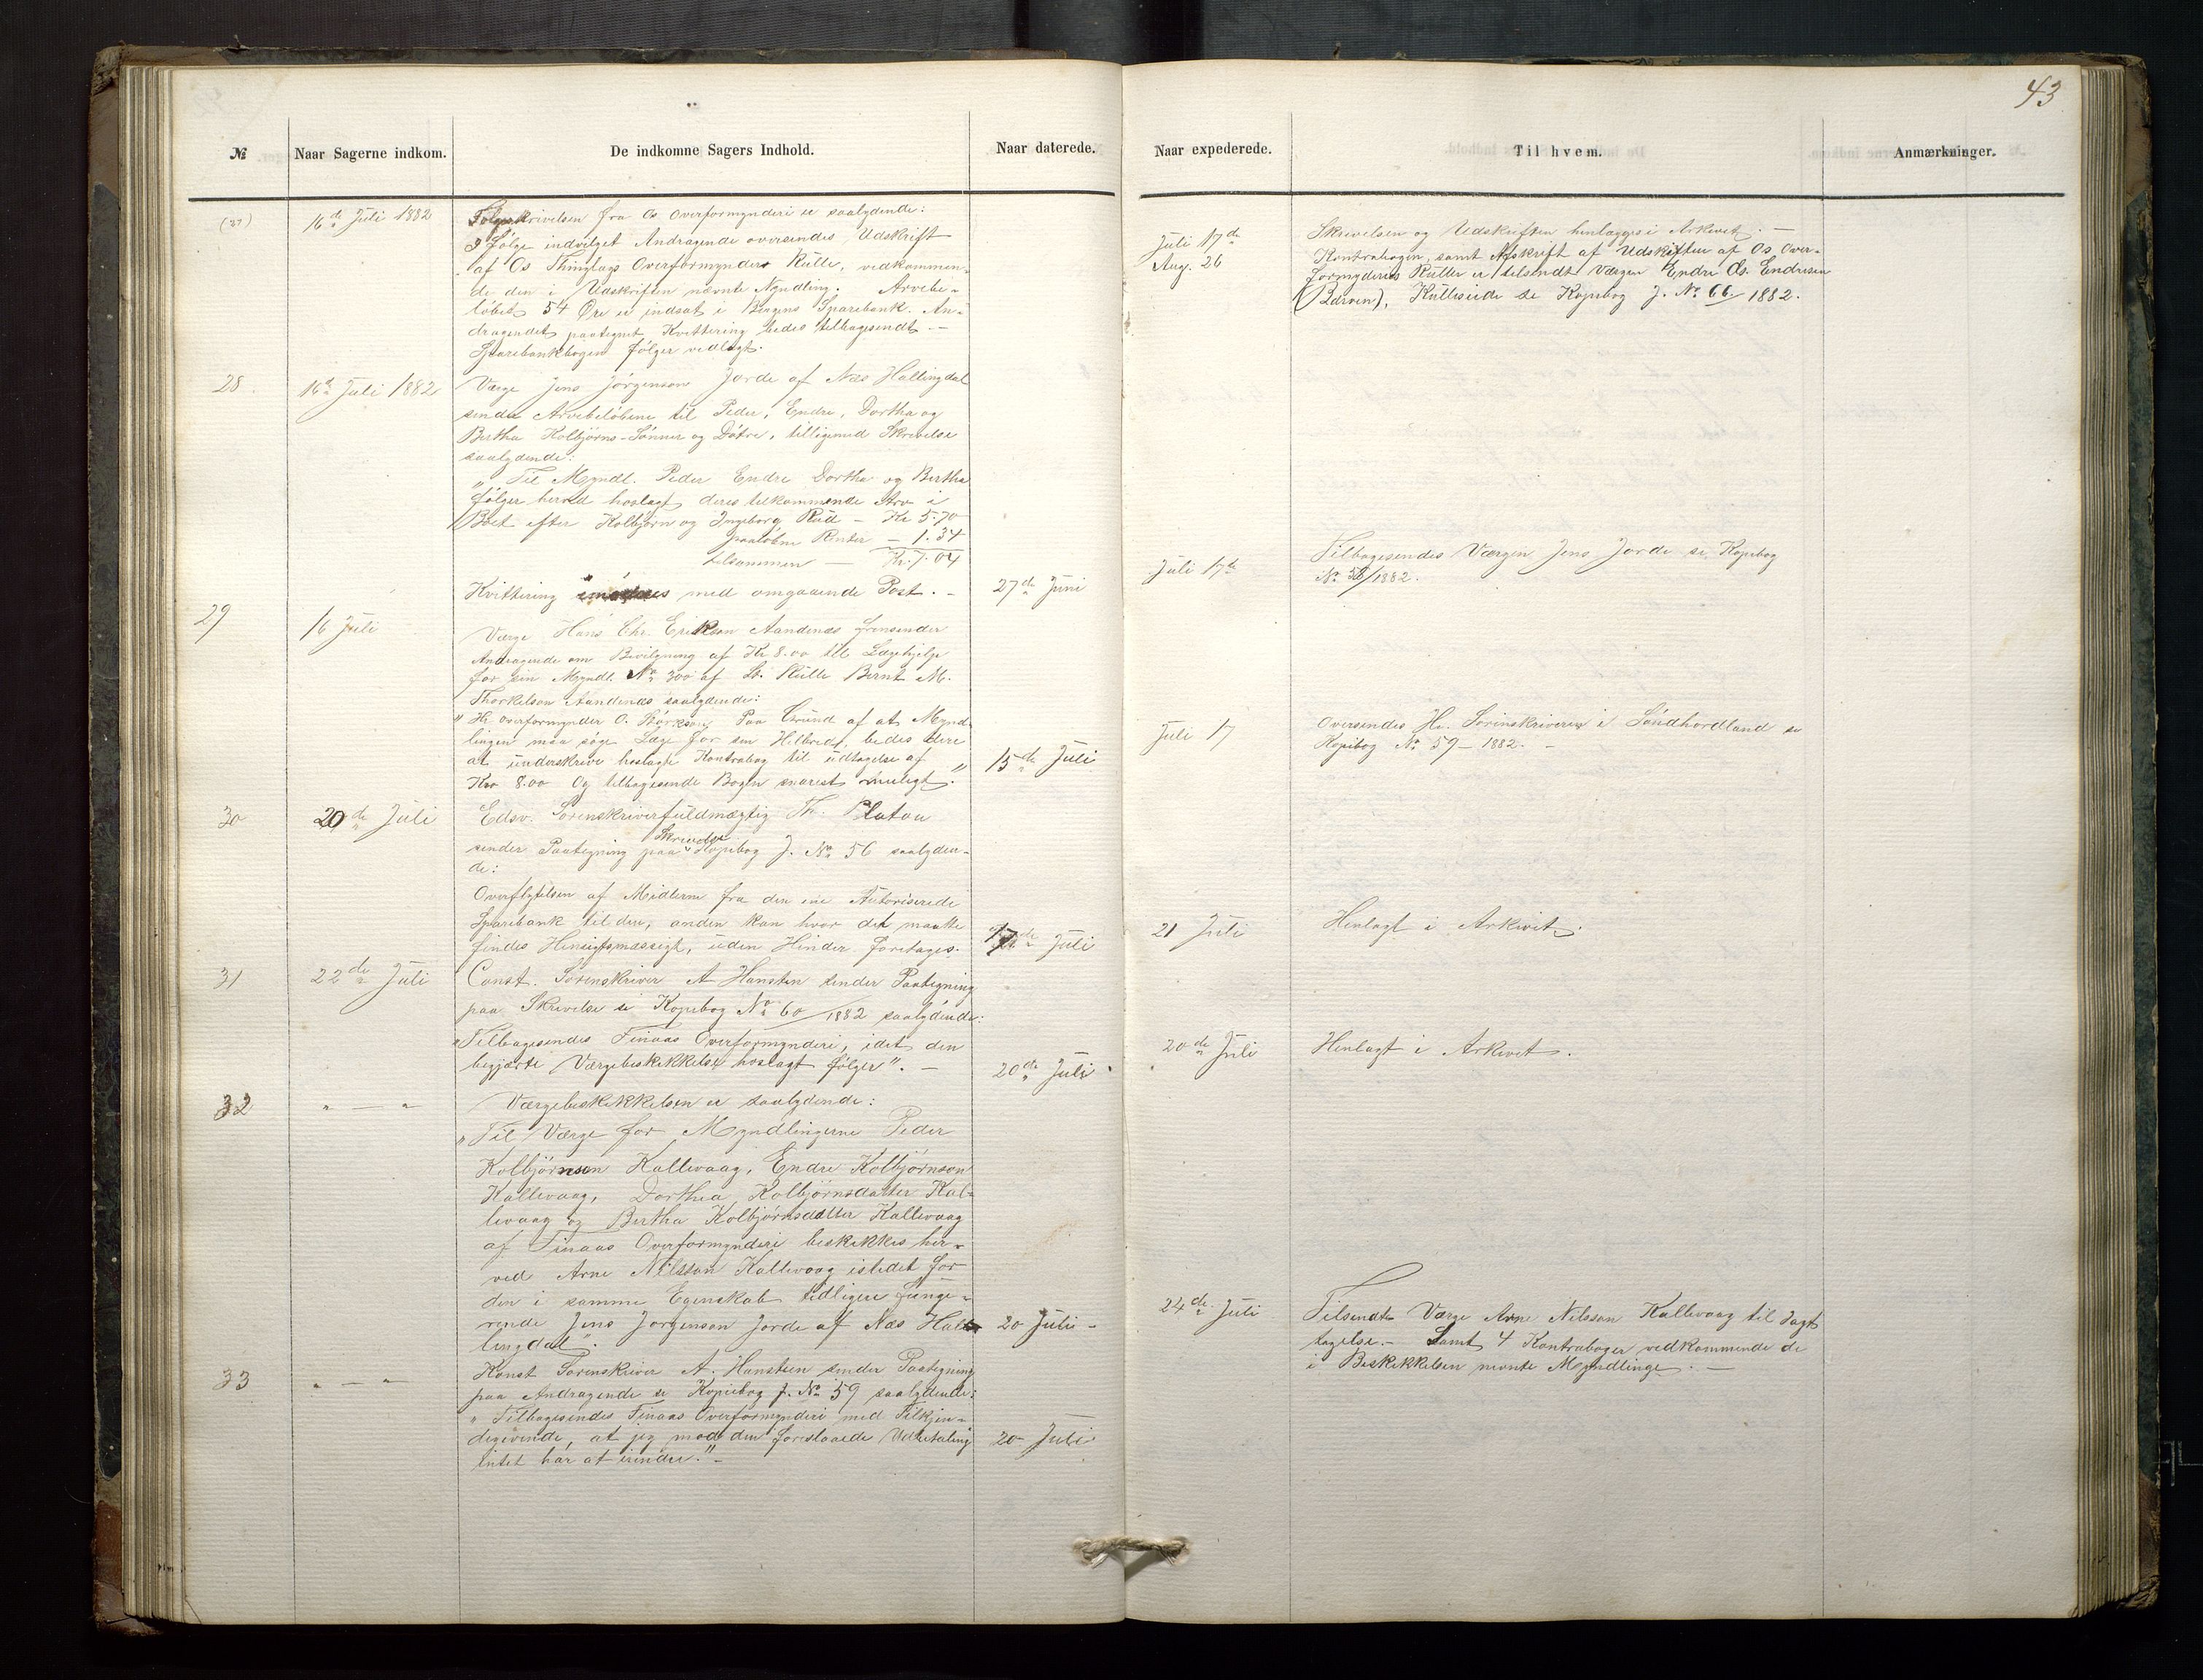 43
№
Naar Sagerne indkom.
De indkomne Sagers Indhold.
Naar daterede.
Naar expederede.
Til hvem.
Anmærkninger.
(27)
16de Juli 1882
Følgeskrivelsen fra Os Overformynderi er saalydende:
I Følge indvilget Andragende oversendes Udskrift
af Os Thinglags Overformynders Rulle, vedkommen-
de den i Udskriften nævnte Myndling. Arvebe-
løbet 54 Øre er indsat i Bergens Sparebank. An-
dragendet paategnet Kvittering bedes tilbagesendt.-
Sparebankbogen følger vedlagt.
Juli 17de
Aug. 26
Skrivelsen og Udskriften henlægges i Arkivet. -
Kontrabogen, samt Afskrift af Udskriften af Os Over-
formynderis Rulle er tilsendt Værgen Endre Endresen
Kulleseide se Kopibog J. No 66. 1882.
28
16de Juli 1882
Værge Jens Jørgenson Jorde af Næs Hallingdal
sender Arvebeløbene til Peder, Endre, Dorthea og
Bertha Kolbjørns-Sønner og Døtre, tilligemed Skrivelse
saalydende:
"Til Myndl. Peder Endre Dorthea og Bertha
følger herved hoslagt deres tilkommende Arv i
Boet efter Kolbjørn og Ingeborg Rud - Kr 5.70
paaløbne Renter - 1.34
tilsammen - Kr. 7.04
Kvittering med omgaaende Post. -
27de Juni
Juli 17de
Tilbagesendes Værgen Jens Jorde se Kopibog
No 58/1882.
29
16 Juli
Værge Hans Chr. Erikson Aandenæs frensender
Andragende om Bevilgning af Kr 8.00 til Lægehjelp
for sin Myndl. No 300 af Rulle Bernt M.
Thorkelson Aandenæs saalydende:
"Hr. Overformynder O. Størkson, Paa Grund af at Mynd-
lingen maa søge Læge for sin Helbred, bedes dere
at underskrive hoslagte Kontrabog til udtagelse af
Kro 8.00 Og tilbagesende Bogen snarest muligt."
15de Juli
Juli 17
Oversendes Hr. Sorenskriveren i Søndhordland se
Kopibog No 59 - 1882. -
30
20de Juli
Edsv. Sorenskriverfuldmægtig Th. Platou
sender Paategning paa Skrivelse Kopibog J. No 56 saalyden-
de:
Overflytelsen af Midlerne fra den ene Autoriserede
Sparebank til den anden kan hvor det maatte
findes Hensigtsmæssigt, uden Hinder foretages.
17de Juli
21 Juli
Henlagt i Arkivet.
31
22de Juli
Const. Sorenskriver A Hansten sender Paategning
paa Skrivelse se Kopibog No 60/1882 saalydende:
"Tilbagesendes Finaas Overformynderi, idet den
begjærte Værgebeskikkelse hoslagt følger". -
20de Juli
20de Juli
Henlagt i Arkivet.
32
" - "
Værgebeskikkelsen er saalydende:
"Til Værge for Myndlingerne Peder
Kolbjørnson Kallevaag, Endre Kolbjørnson
Kallevaag, Dorthea Kolbjørnsdatter Kal-
levaag og Bertha Kolbjørnsdatter Kallevaag
af Finaas Overformynderi beskikkes her-
ved Arne Nilsson Kallevaag istedet for
den i samme Egenskab tidligere funge-
rende Jens Jørgenson Jorde af Næs Hal-
lingdal".
20 Juli -
24de Juli
Tilsendt Værge Arne Nilsson Kallevaag til Iagt-
tagelse. - Samt 4 Kontrabøger vedkommende de
i Beskikkelsen nevnte Myndlinge. -
33
" - "
Konst Sorenskriver A. Hansteen sender Paategning
paa Andragende se Kopiebog J. No 59 saalydende:
"Tilbagesendes Finaas Overformynderi med Tilkjen-
degivende, at jeg mod den foreslaaede Udbetaling
intet har at erindre." -
20 Juli